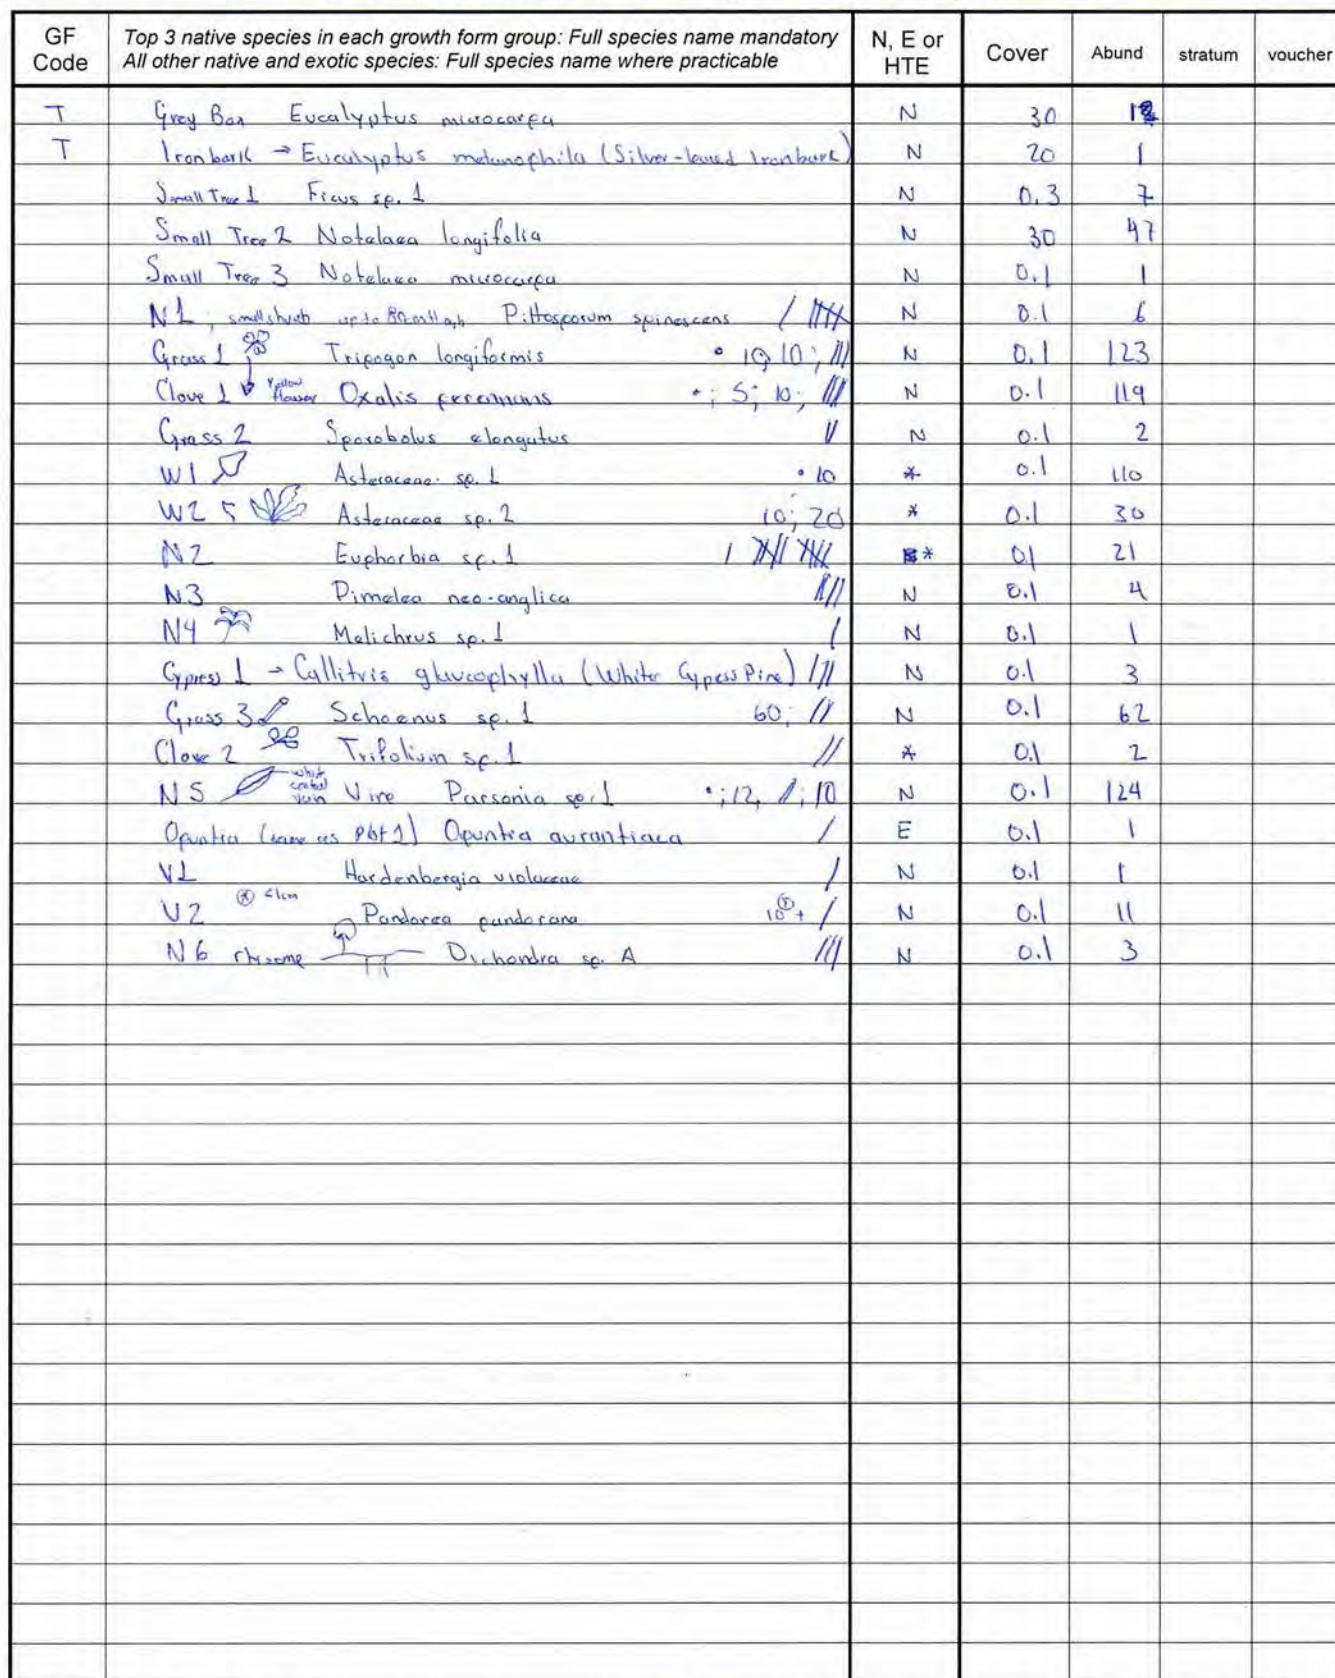 GF Code | Top 3 native species in each growth form group: Full species name mandatory All other native and exotic species: Full species name where practicable | N, E or HTE | Cover | Abund | stratum | voucher
T Grey Box Eucalyptus microcarpa N 30
T Ironbark → Eucalyptus melanophila (Silver-leaved Ironbark) N 20 1
Small Tree 1 Ficus sp. 1 N 0.3 7
Small Tree 2 Notelaea longifolia N 30 47
Small Tree 3 Notelaea microcarpa N 0.1 1
N1, small shrub up to Pittosporum spinescens N 0.1 6
Grass 1 Tripogon longiformis • 10, 10; /// N 0.1 123
Clove 1 Yellow flower Oxalis perennans •; 5; 10; N 0.1 119
Grass 2 Sporobolus elongatus // N 0.1 2
W1 Asteraceae sp. 1 • 10 * 0.1 110
W2 Asteraceae sp. 2 10; 20 * 0.1 30
N2 Euphorbia sp. 1 * 0.1 21
N3 Pimelea neo-anglica //// N 0.1 4
N4 Melichrus sp. 1 / N 0.1 1
Cypress 1 → Callitris glaucophylla (White Cypress Pine) /// N 0.1 3
Grass 3 Schoenus sp. 1 60; // N 0.1 62
Clove 2 Trifolium sp. 1 // * 0.1 2
N5 white central vein Vine Parsonia sp. 1 •; 12, //; 10 N 0.1 124
Opuntia (same as Plot 1) Opuntia aurantiaca / E 0.1 1
V1 Hardenbergia violaceae / N 0.1 1
V2 ⊛ <1cm Pandorea pandorana 10 + / N 0.1 11
N6 rhizome Dichondra sp. A /// N 0.1 3